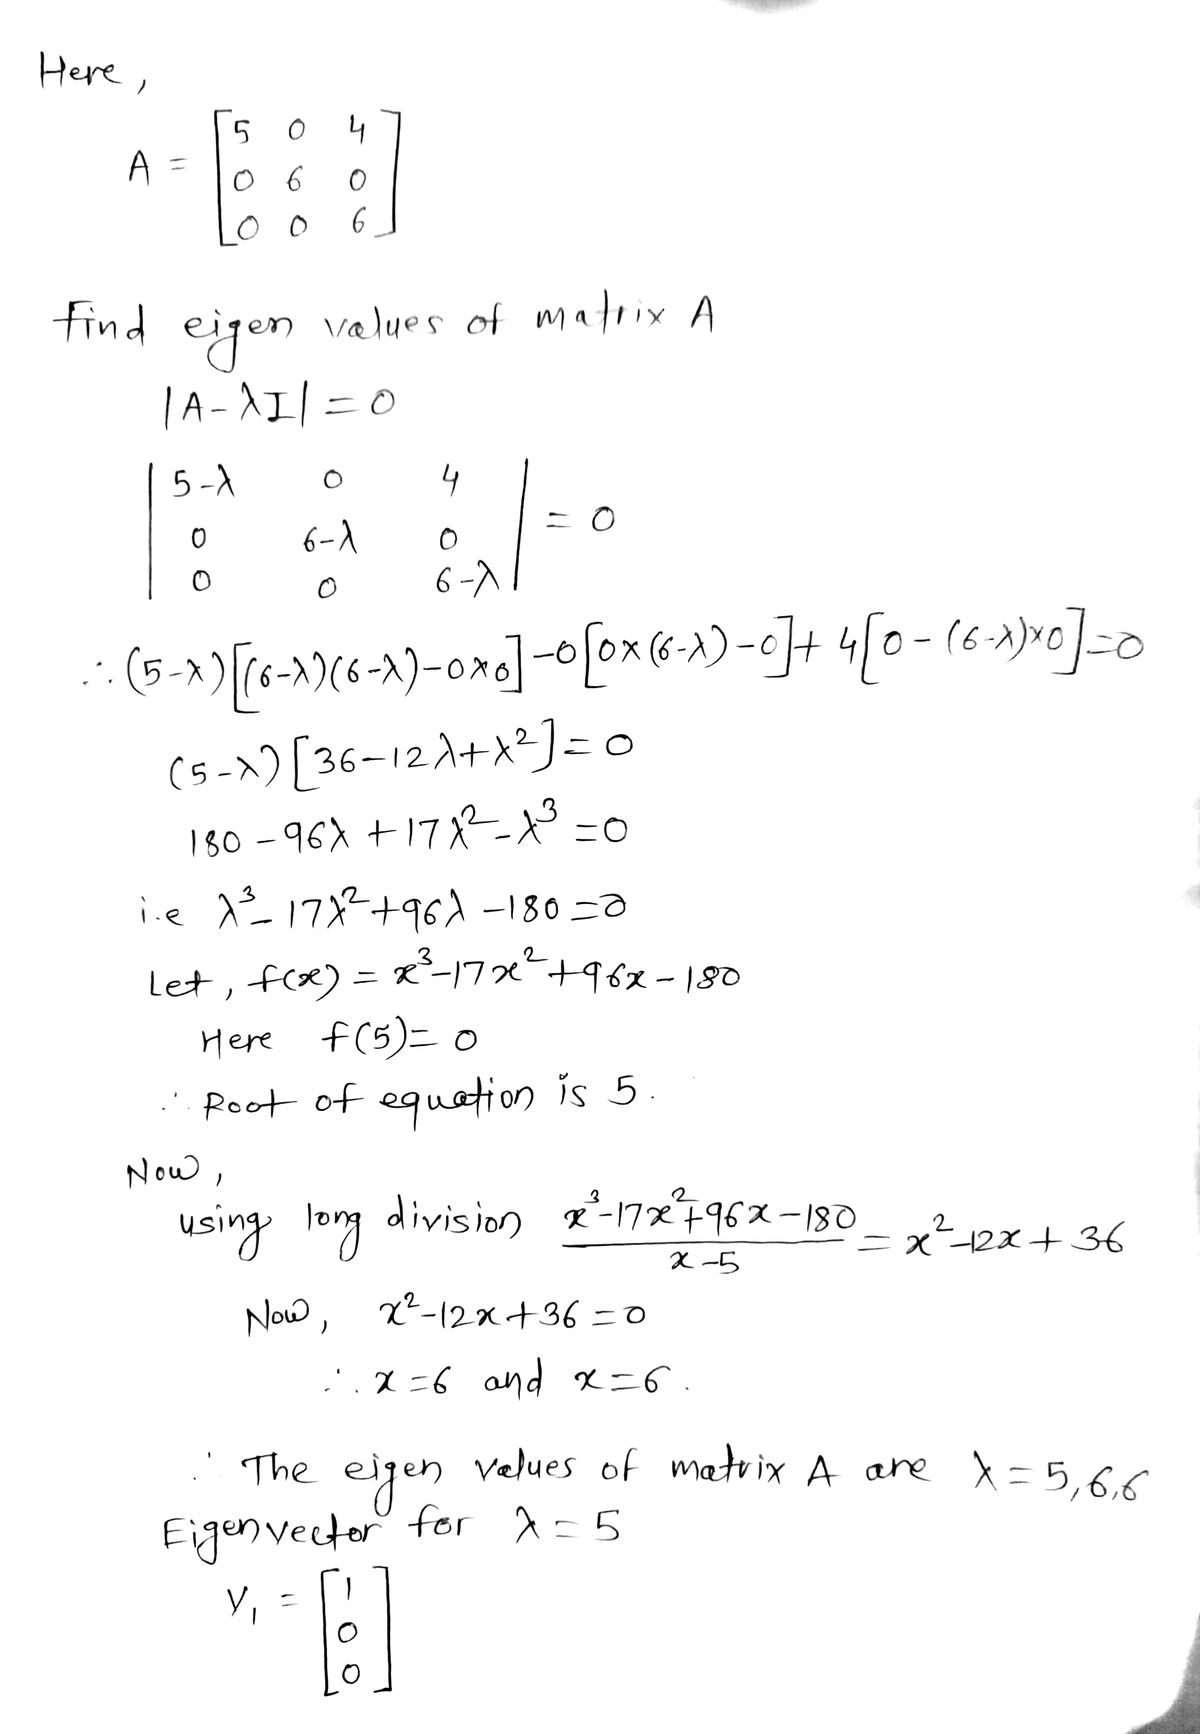 Here,
A = [5 0 4
0 6 0
0 0 6]
Find eigen values of matrix A
|A-λI| = 0
|5-λ 0 4
0 6-λ 0
0 0 6-λ| = 0
∴ (5-λ)[(6-λ)(6-λ)-0×0]-0[0×(6-λ)-0]+4[0-(6-λ)×0]=0
(5-λ)[36-12λ+λ²]=0
180-96λ+17λ²-λ³=0
i.e λ³-17λ²+96λ-180=0
Let, f(x) = x³-17x²+96x-180
Here f(5)=0
∴ Root of equation is 5.
Now,
using long division (x³-17x²+96x-180)/(x-5) = x²-12x+36
Now, x²-12x+36=0
∴ x=6 and x=6.
∴ The eigen values of matrix A are λ=5,6,6
Eigenvector for λ=5
V₁ = [1
0
0]